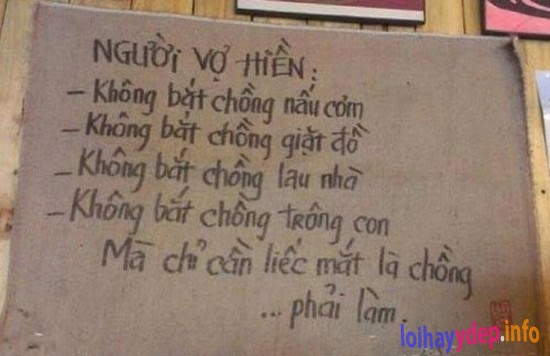 NGƯỜI VỢ HIỀN:
- Không bắt chồng nấu cơm
- Không bắt chồng giặt đồ
- Không bắt chồng lau nhà
- Không bắt chồng trông con
Mà chỉ cần liếc mắt là chồng
...phải làm.
loihayydep.info